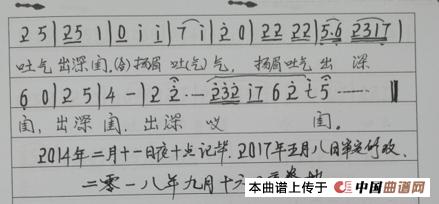 2 5 | 2 5 1 | 0 i i | 7 i | 2 0 | 22 22 | 5·6 2317 |
吐气 出深闺.(令) 扬眉 吐(气) 气, 扬眉吐气 出 深
6 0 | 2 5 | 4 - | 2 2 ·-- 232 i7 6 2 7 5 ------ ‖
闺, 出深 闺. 出深 哎 闺.
2014年二月十一日夜十点记毕. 2017年五月八日审定修改.
二零一八年九月十六
本曲谱上传于 中国曲谱网